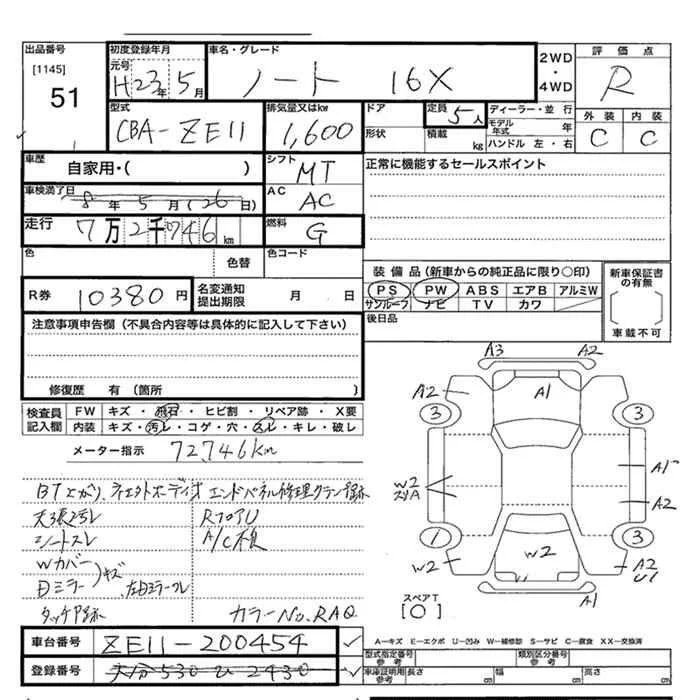 出品番号 初度登録年月 車名・グレード 2WD・4WD 評価点
[1145] 51 元号 H23年5月 ノート 16X R
型式 CBA-ZE11 排気量又はkw 1,600 ドア 定員 5人 ディーラー・並行 外装 内装
形状 積載 kg モデル年式 年 ハンドル 左・右 C C
車歴 自家用・( ) シフト MT 正常に機能するセールスポイント
車検満了日 8年5月(26日) AC AC
走行 7万2千746km 燃料 G
色 色替 色コード 装備品(新車からの純正品に限り○印) 新車保証書の有無
R券 10380円 名変通知提出期限 月 日 PS PW ABS エアB アルミW
サンルーフ ナビ TV カワ 車載不可
注意事項申告欄(不具合内容等は具体的に記入して下さい) 後日品
修復歴 有(箇所 )
検査員記入欄 FW キズ・飛石・ヒビ割・リペア跡・X要
内装 キズ・汚レ・コゲ・穴・スレ・キレ・破レ
メーター指示 72,746km
エンドパネル修理
天張汚レ RフロアU
シートスレ A/C不良
Wカバー
Dミラー キズ
タッチ跡 カラーNo.RAQ
A3 A2
A2 A1
3 3
W2 A1
A2
1 3
W2 W2 A2
U1
A1
スペアT
[0]
車台番号 ZE11-200454
登録番号 大分530 ひ 2430
A-キズ E-エクボ U-凹み W-補修部 S-サビ C-腐食 XX-交換済
型式指定番号 参考 類別区分番号 参考
車庫証明用 参考 長さ cm 幅 cm 高さ cm